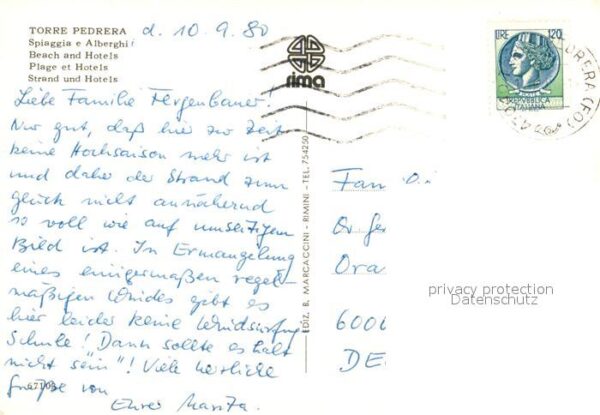 TORRE PEDRERA
Spiaggia e Alberghi
Beach and Hotels
Plage et Hotels
Strand und Hotels
d. 10.9.80
rima
LIRE 120
REPVBBLICA
ITALIANA
Liebe Familie Fergenbauer!
Nur gut, daß hier zur Zeit
keine Hochsaison mehr ist
und daher der Strand zum
Glück nicht annähernd
so voll wie auf umseitigem
Bild ist. In Ermangelung
eines einigermaßen regel-
mäßigen Windes gibt es
hier leider keine Windsurfing
Schule! Dann sollte es halt
nicht "sein"! Viele herzliche
Grüße von
Marita.
EDIZ. B. MARCACCINI - RIMINI - TEL. 754250
Fam
Ora
6000
DE
privacy protection
Datenschutz